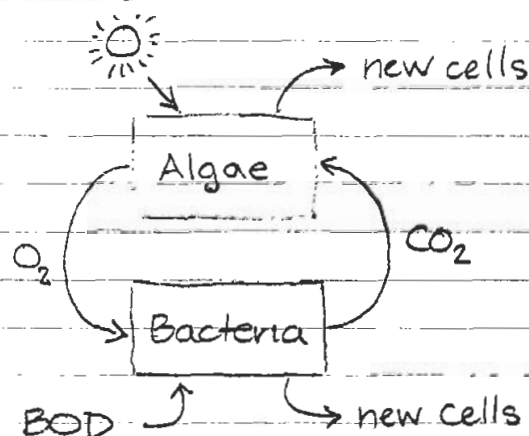 new cells
Algae
O₂
CO₂
Bacteria
BOD
new cells